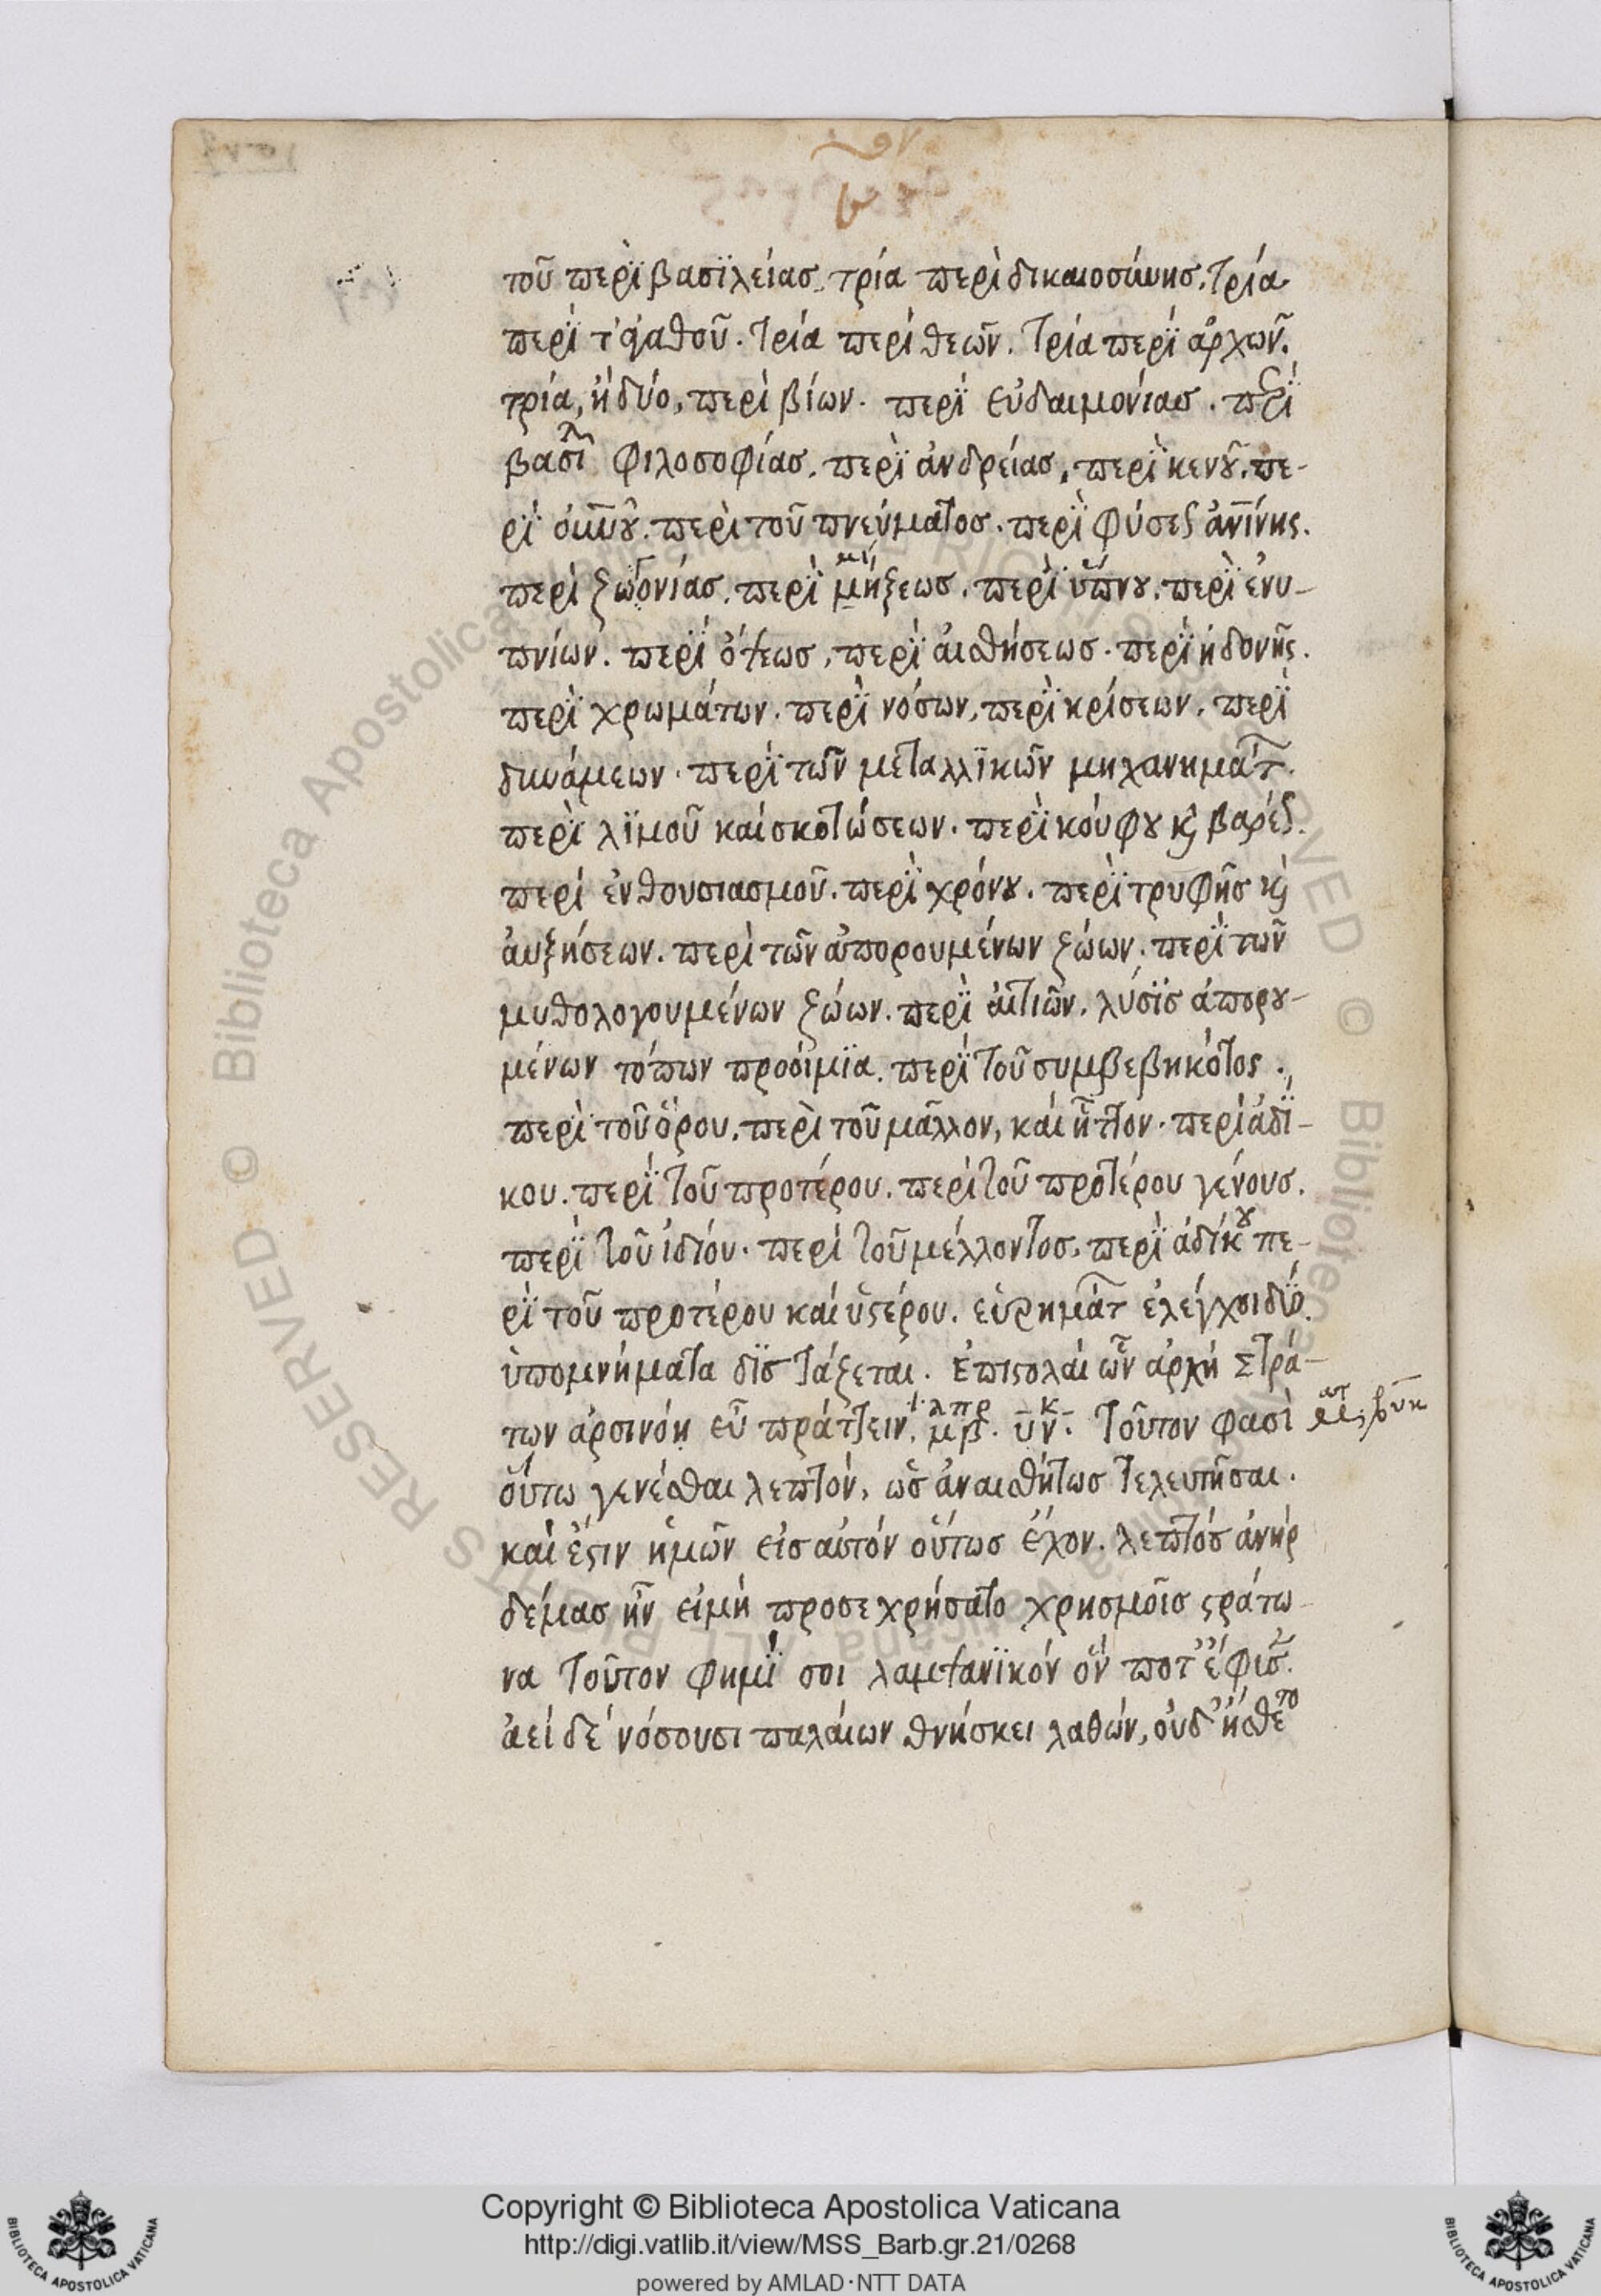 τοῦ περὶ βασϊλείας. τρία περὶ δικαιοσύνης. τρία
περὶ τ' ἀγαθοῦ. τρία περὶ θεῶν. τρία περὶ ἀρχῶν.
τρία, ἢ δύο, περὶ βίων. περὶ εὐδαιμονίας. περὶ
βασι^λ φιλοσοφίας. περὶ ἀνδρείας. περὶ κενοῦ. πε-
ρὶ οὐνοῦ. περὶ τοῦ πνεύματος. περὶ φύσε ἀνίνης.
περὶ ζωογονίας. περὶ μήξεως. περὶ ὕπνου. περὶ ἐνυ-
πνίων. περὶ ὄψεως. περὶ αἰσθήσεως. περὶ ἡδονῆς.
περὶ χρωμάτων. περὶ νόσων, περὶ κρίσεων. περὶ
δυνάμεων. περὶ τῶν μεταλλϊκῶν μηχανημάτ
περὶ λϊμοῦ καὶ σκοτώσεων. περὶ κούφου κ̀ βαρέ
περὶ ἐνθουσιασμοῦ. περὶ χρόνου. περὶ τρυφῆς κ̀
αὐξήσεων. περὶ τῶν ἀπορουμένων ζώων. περὶ τῶν
μυθολογουμένων ζώων. περὶ αἰτιῶν. λύσϊς ἀπορου-
μένων τόπων προοίμϊα. περὶ τοῦ συμβεβηκότος.
περὶ τοῦ ὅρου. περὶ τοῦ μᾶλλον, καὶ ἧττον. περὶ ἀδϊ-
κου. περὶ τοῦ προτέρου. περὶ τοῦ προτέρου γένους.
περὶ τοῦ ἰδίου. περὶ τοῦ μέλλοντος. περὶ ἀδίκου πε-
ρὶ τοῦ προτέρου καὶ ὑστέρου. εὑρημάτ ἐλέγχοι δύο.
ὑπομνήματα δϊστάζεται. ἐπιστολαὶ ὧν ἀρχὴ Στρά-
των ἀρσινόη εὖ πράττειν. μβ. υν. τοῦτον φασὶ
οὕτω γενέσθαι λεπτὸν, ὡς ἀναισθήτως τελευτῆσαι.
καὶ ἔστιν ἡμῶν εἰς αὐτὸν οὕτως ἔχον. λεπτὸς ἀνὴρ
δέμας ἦν εἰμὴ προσεχρήσατο χρησμοῖς στράτω-
να τοῦτον φημί σοι λαμψανϊκόν ὅν ποτ' ἔφισ
ἀεὶ δὲ νόσουσι παλαίων θνήσκει λαθών, οὐδ' ἤσθετο